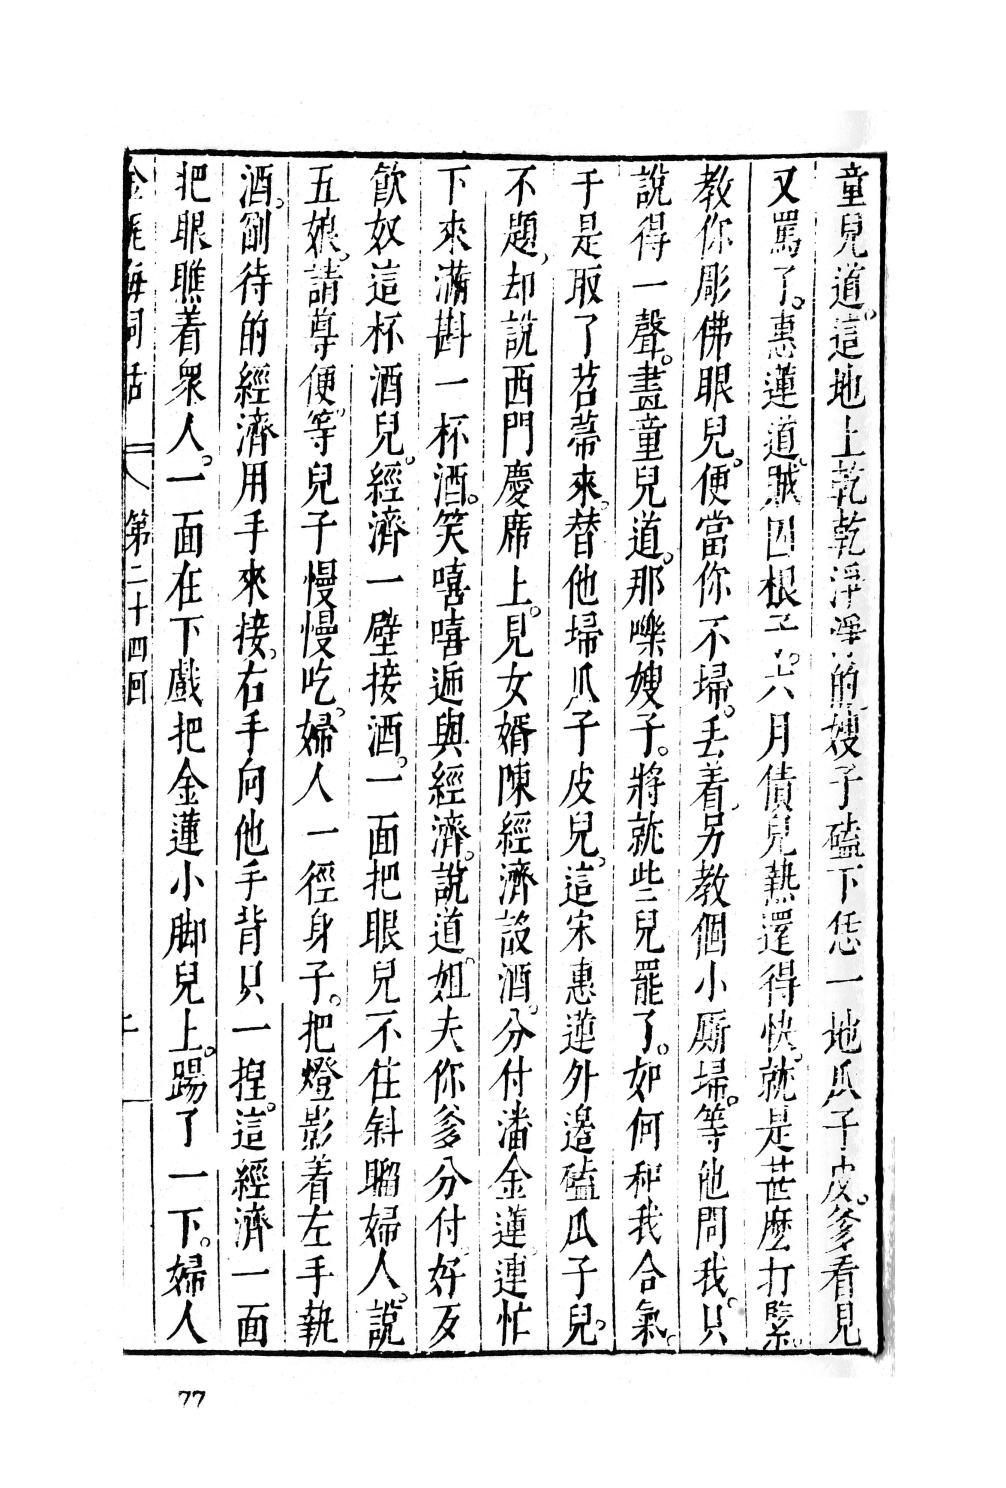 童兒道。這地上乾乾淨淨的。嫂子磕下恁一地瓜子皮。爹看見
又罵了。惠蓮道。賊囚根子。六月債兒熱還得快。就是甚麼打緊。
教你彫佛眼兒。便當你不掃。丟着。另教個小厮掃。等他問我。只
說得一聲。畫童兒道。那嚛嫂子。將就些兒罷了。如何和我合氣。
于是取了苕菷來。替他掃瓜子皮兒。這宋惠蓮外邊磕瓜子兒。
不題。却說西門慶席上。見女婿陳經濟沒酒。分付潘金蓮連忙
下來滿斟一杯酒。笑嘻嘻遞與經濟。說道。姐夫你爹分付。好歹
飲奴這杯酒兒。經濟一壁接酒。一面把眼兒不住斜睸婦人。說
五娘。請尊便。等兒子慢慢吃。婦人一徑身子。把燈影着左手執
酒。剛待的經濟用手來接。右手向他手背只一揑。這經濟一面
把眼瞧着衆人。一面在下戲把金蓮小脚兒上。踢了一下。婦人
金瓶梅詞話 第二十四回
77